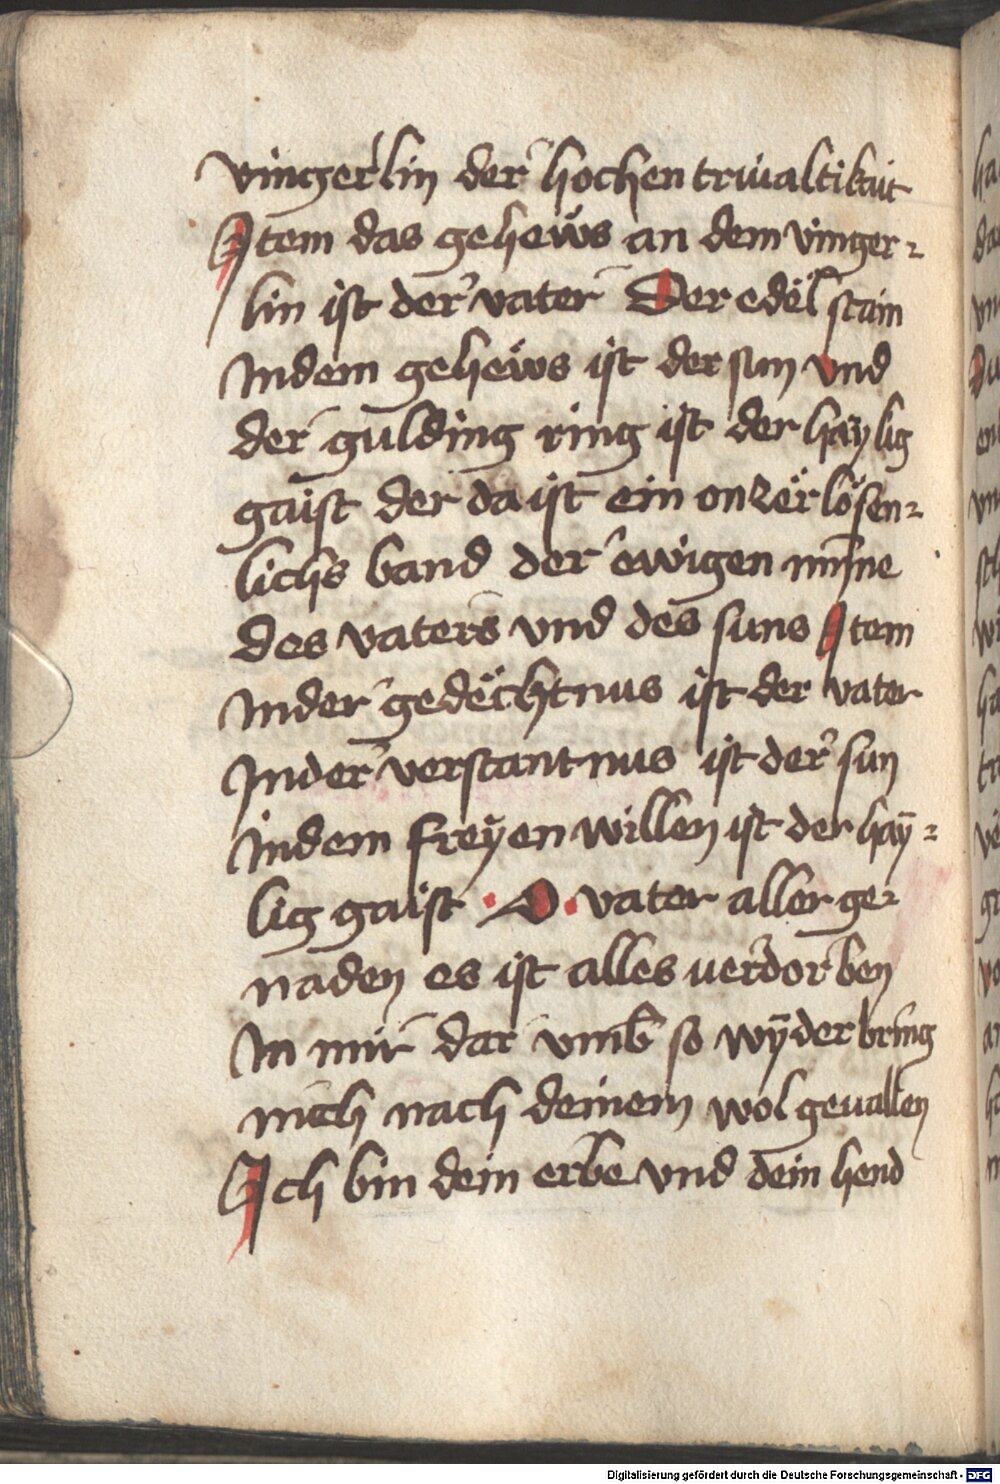 vingerlin der hochen triualtikait
Item das gehews an dem vinger-
lin ist der vater Der edel stain
Indem gehews ist der sun und
der gulding ring ist der haylig
gaist der da ist ein onzerlösen-
lichs band der ewigen minne
des vaters vnd des suns Item
Inder gedechtnus ist der vater
Inder verstantnus ist der sun
Indem freyen willen ist der haÿ-
lig gaist · O · vater aller ge-
naden es ist alles uerdorben
In mir dar vmb so wÿderbring
mich nach deinem wolgeuallen
Ich bin dein erbe vnd dein hend
Digitalisierung gefördert durch die Deutsche Forschungsgemeinschaft - DFG